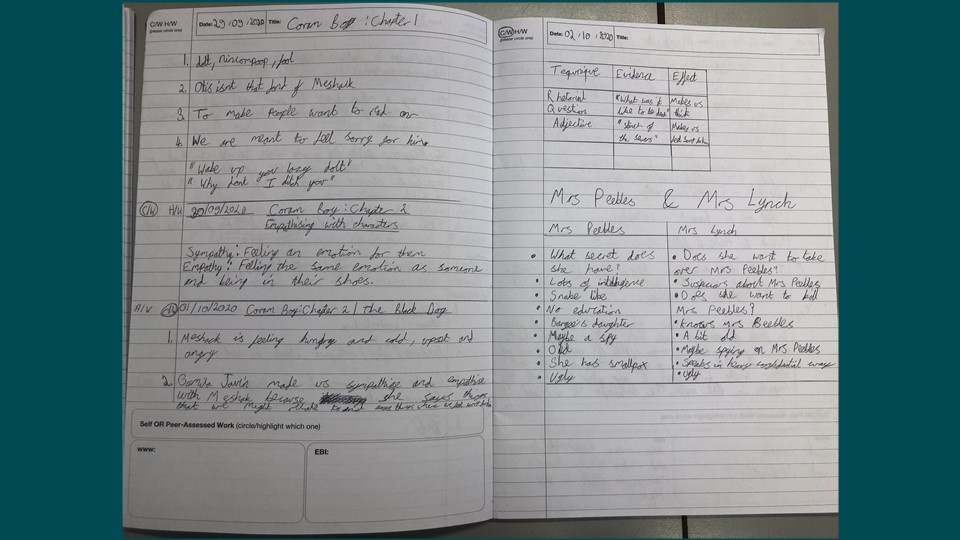 C/W H/W
(please circle one)
Date: 29/09/2020 Title: Coram Boy: Chapter 1
1. dolt, nincompoop, fool
2. Otis isnt that fond of Meshak
3. To make people want to read on
4. We are meant to feel sorry for him
"Wake up you lazy dolt"
"Why dont I ditch you"
C/W H/W 30/09/2020 Coram Boy: Chapter 2
Empathising with characters
Sympathy: Feeling an emotion for them
Empathy: Felling the same emotion as someone
and being in their shoes.
01/10/2020 Coram Boy: Chapter 2 | The Black Dog
1. Meshack is feeling hungry and cold, upset and
angry
2. Jamila Gavin made us sympathise and empathise
with Meshak because she says things
that we might relate to and
Self OR Peer-Assessed Work (circle/highlight which one)
www:
EBI:
C/W H/W
(please circle one)
Date: 02/10/2020 Title:
Tequnique Evidence Effect
Rhetorical "What was it Makes us
Question like to be dead" think
Adjective Makes us
Mrs Peebles & Mrs Lynch
Mrs Peebles
• What secret does
she have!
• Lots of intelegence
• Snake like
• No education
• Bargee's daughter
• Maybe a spy
• Old
• She has smallpox
• Ugly
Mrs Lynch
• Does she want to take
over Mrs Peebles?
• Suspicious about Mrs Peebles
• Does she want to kill
Mrs Peebles?
• Knows Mrs Beebles
• A bit old
• Maybe spying on Mrs Peebles
• Speaks in confidential way
• Ugly